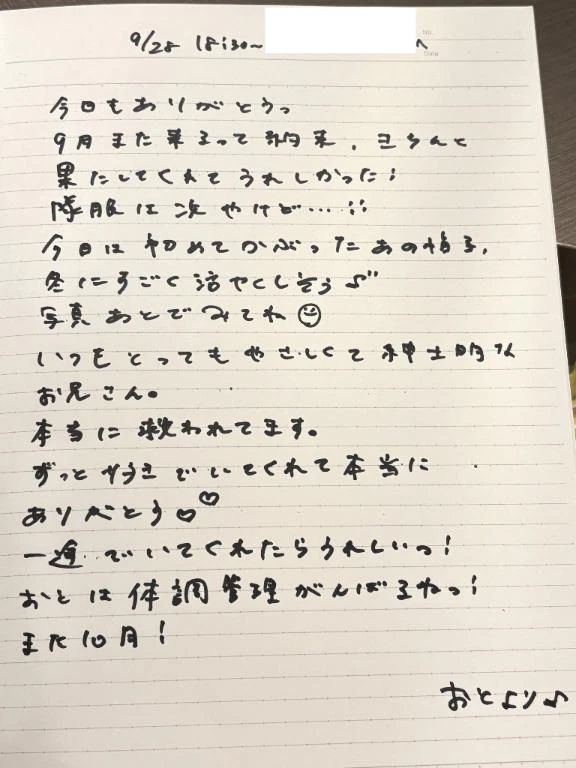 9/28 18:30~ へ
No.
Date
今日もありがとうっ
9月また来るって約束、きちんと
果たしてくれてうれしかった!
隊服は次やけど…!!
今日は初めてかぶったあの帽子、
冬にすごく活やくしそう♪"
写真あとでみてね☺
いつもとってもやさしくて紳士的な
お兄さん。
本当に救われてます。
ずっとすきでいてくれて本当に
ありがとう♡♡
一途でいてくれたらうれしいっ!
おとは体調管理がんばるねっ!
また10月!
おとより♪